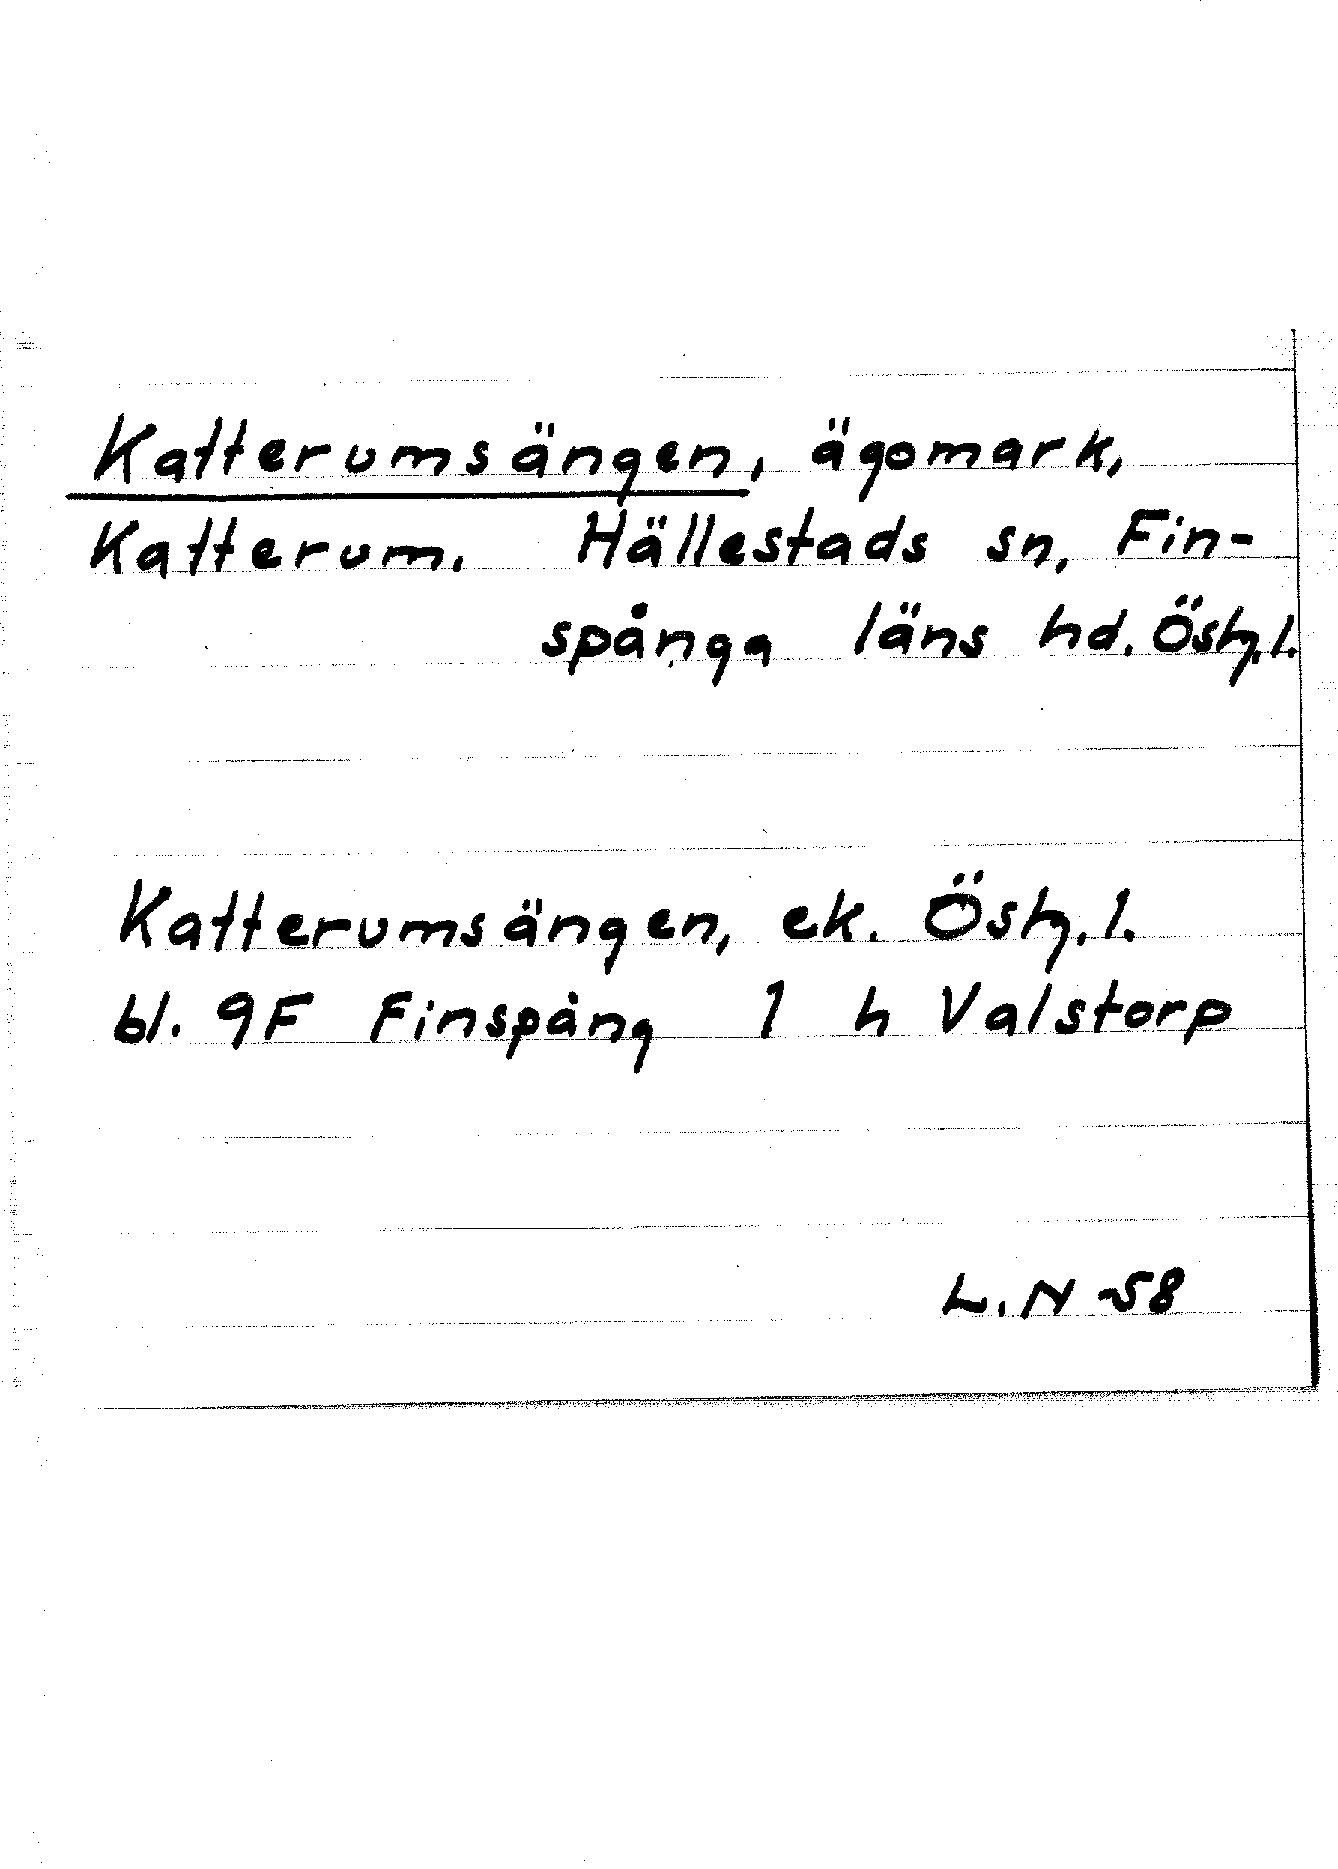 Katterumsängen, ägomark,
Katterum. Hällestads sn, Fin-
spånga läns hd. Östg.l.
Katterumsängen, ek. Östg.l.
bl. 9F Finspång 1 h Valstorp
L.N -58